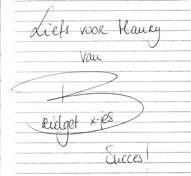 Liefs voor Maury
van
Bridget x-jes
Succes!